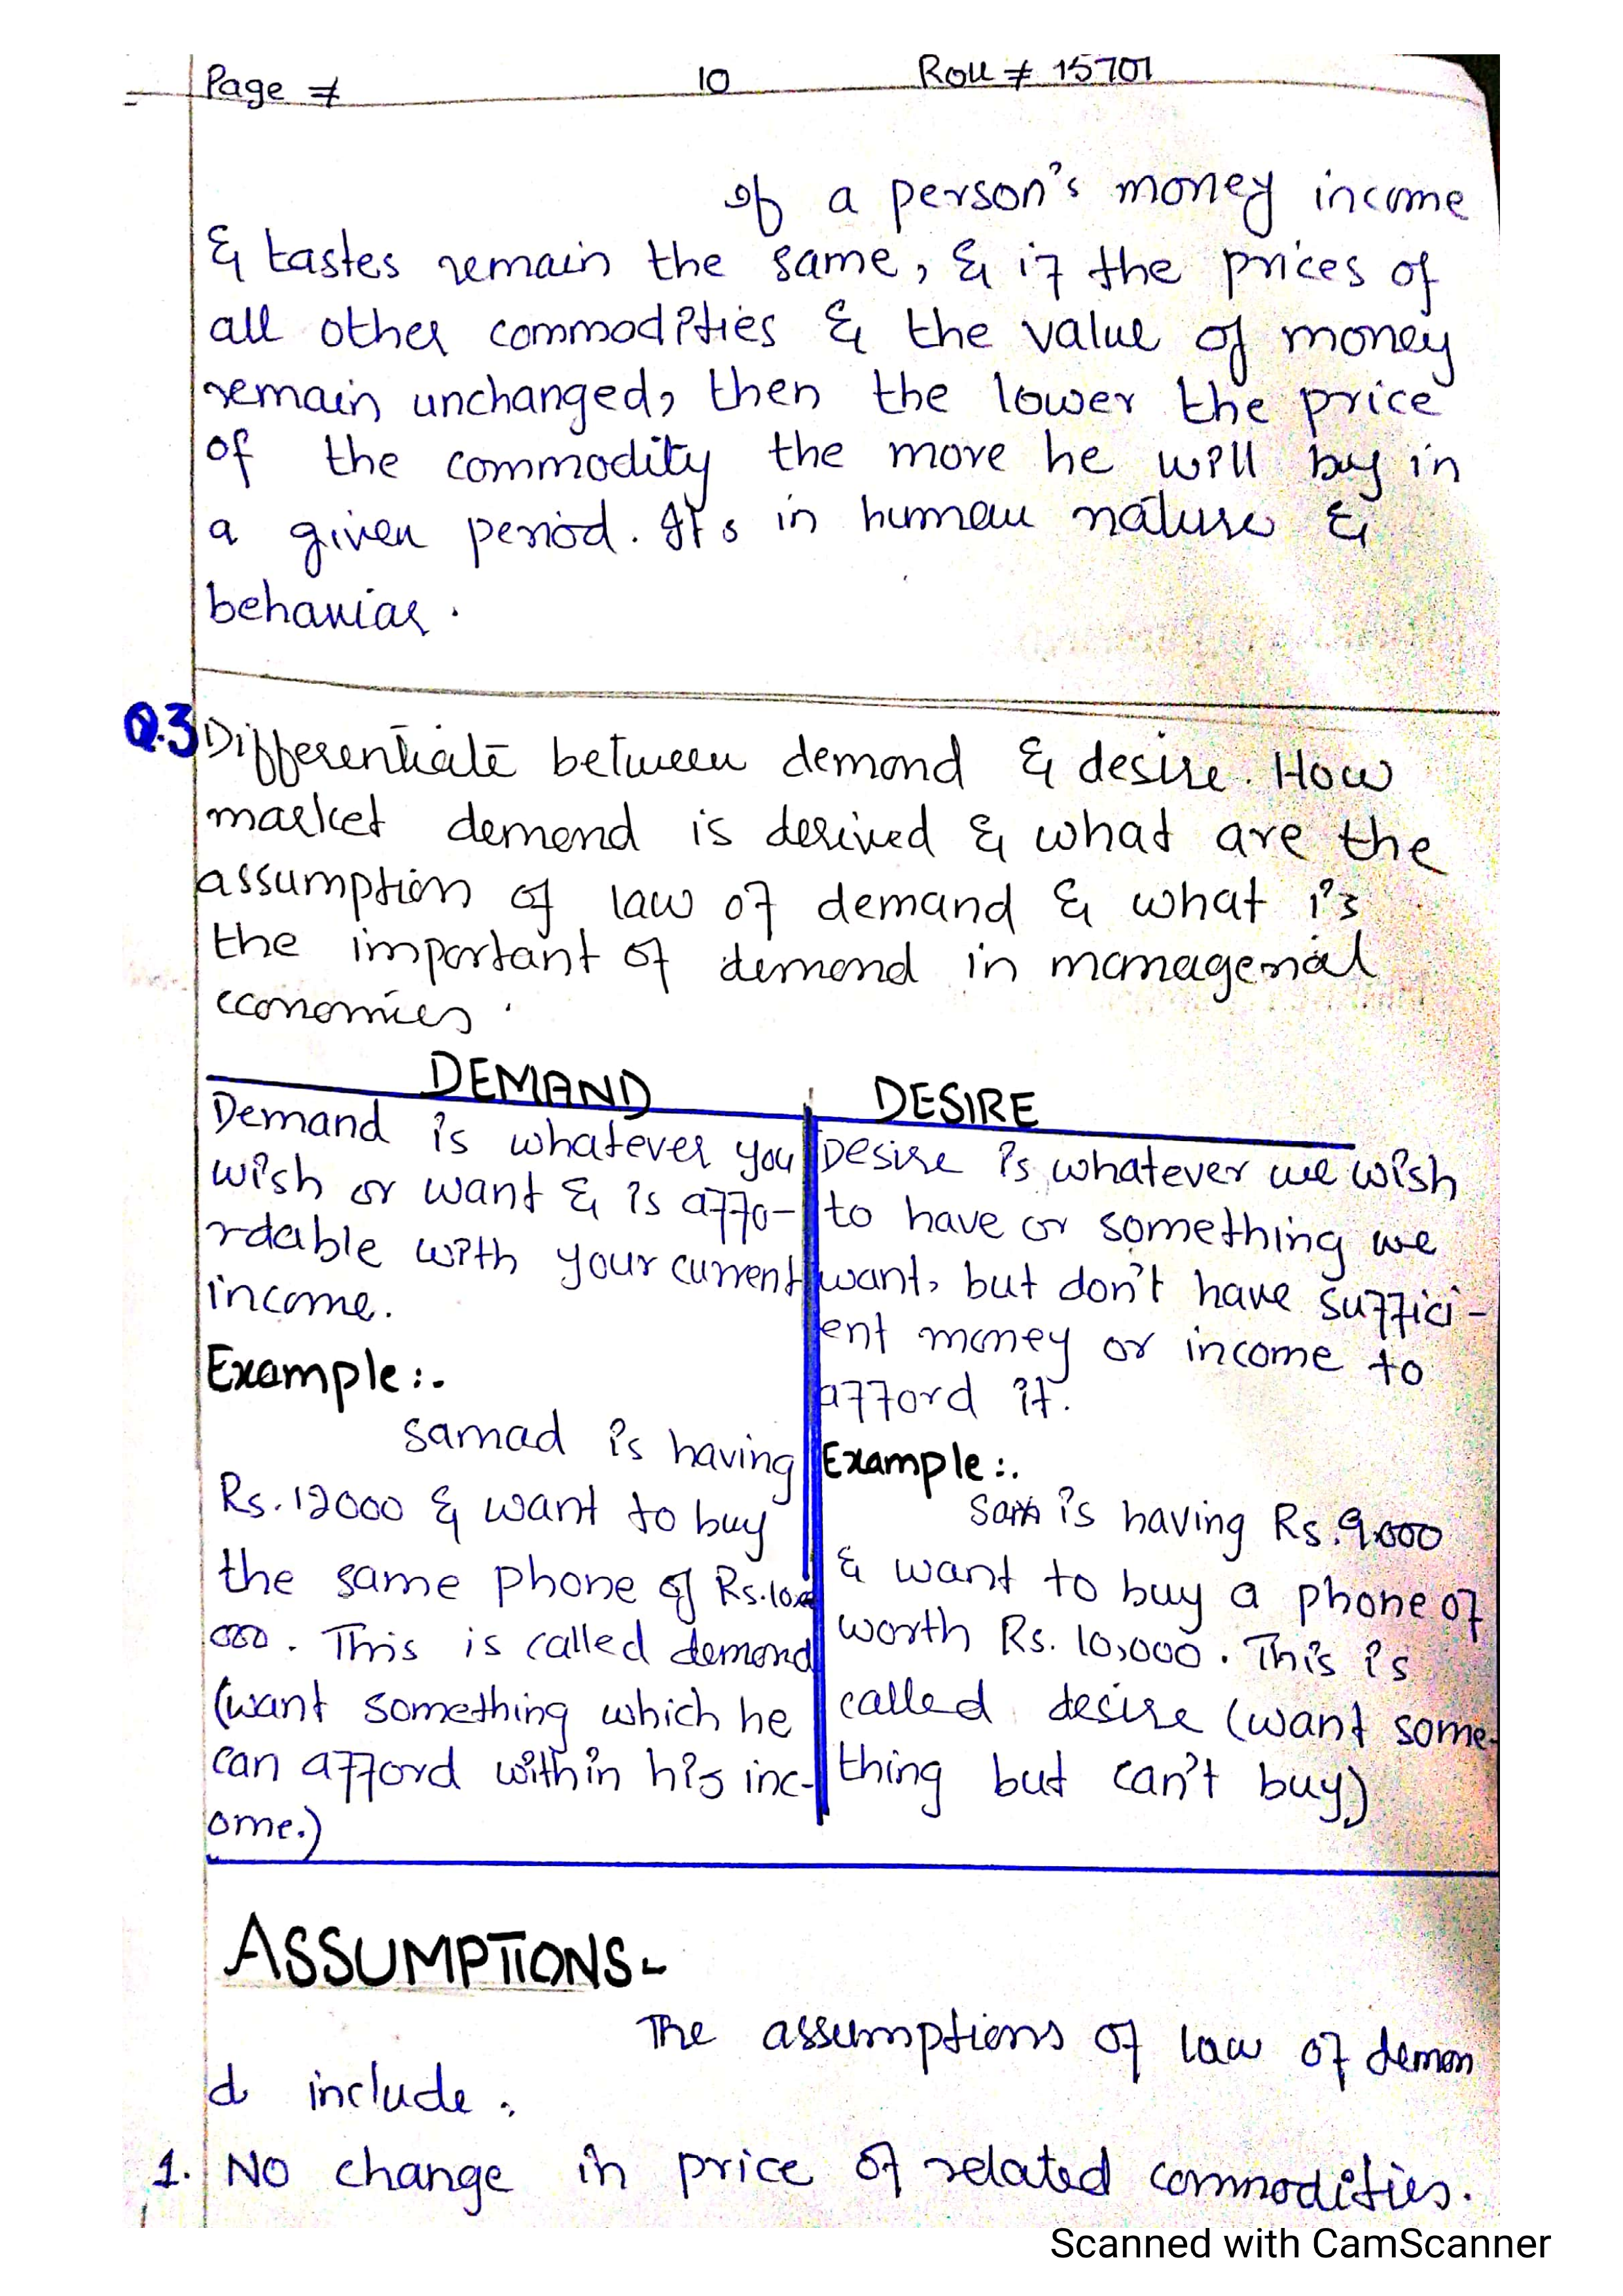 Page # 10 Roll # 15701
If a person's money income
& tastes remain the same, & if the prices of
all other commodities & the value of money
remain unchanged, then the lower the price
of the commodity the more he will buy in
a given period. It's in human nature &
behavior.
Q.3 Differentiate between demand & desire. How
market demand is derived & what are the
assumption of law of demand & what is
the important of demand in managerial
economics.
DEMAND
Demand is whatever you
wish or want & is affo-
rdable with your current
income.
Example:.
Samad is having
Rs. 12000 & want to buy
the same phone of Rs. 10,
000. This is called demand
(want something which he
can afford within his inc-
ome.)
DESIRE
Desire is whatever we wish
to have or something we
want, but don't have suffici-
ent money or income to
afford it.
Example:.
Sam is having Rs. 9,000
& want to buy a phone of
worth Rs. 10,000. This is
called desire (want some-
thing but can't buy)
ASSUMPTIONS-
The assumptions of law of deman
d include.
1. No change in price of related commodities.
Scanned with CamScanner